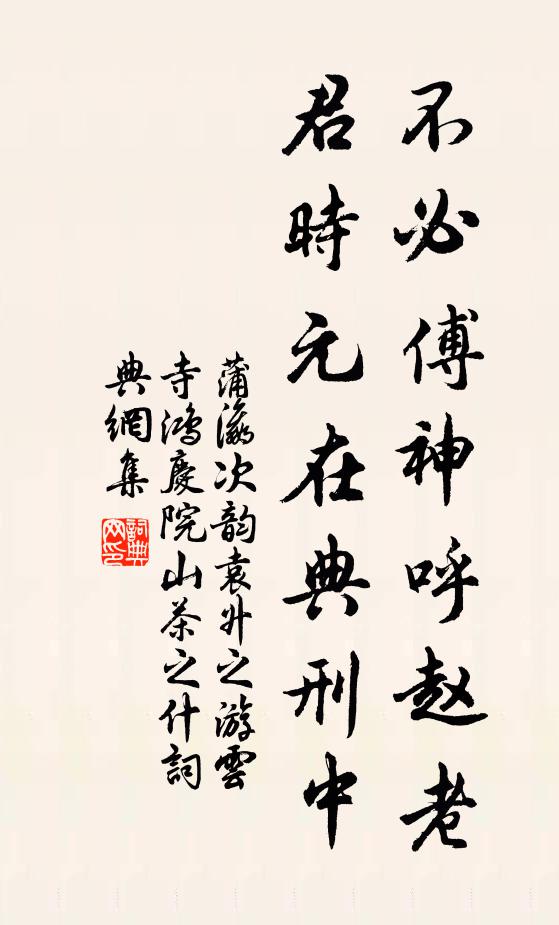 不必傅神呼赵老
君時元在典刑中
蒲瀛次韵袁升之游雲
寺鴻慶院山茶之什詞
典網集
詞典網印